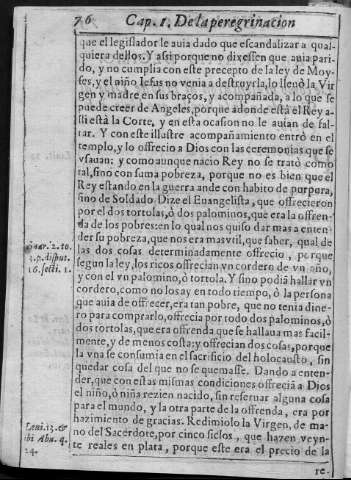 76 Cap. 1. De la peregrinacion
que el legislador le auia dado que escandalizar a qual-
quiera dellos. Y assi porque no dixessen que auia pari-
do, y no cumplia con este precepto de la ley de Moy-
ses, y el niño Iesus no venia a destruyrla, lo lleuò la Vir
gen y madre en sus braços, y acompañada, a lo que se
puede creer de Angeles, porque adonde està el Rey a-
lli està la Corte, y en esta ocasion no le auian de fal-
tar. Y con este illustre acompañamiento entrò en el
templo, y lo offrecio a Dios con las ceremonias que se
vsauan; y como aunque nacio Rey no se tratò como
tal, sino con suma pobreza, porque no es bien que el
Rey estando en la guerra ande con habito de purpura,
sino de Soldado. Dize el Euangelista, que offrecieron
por el dos tortolas, ò dos palominos, que era la offren-
da de los pobres: en lo qual nos quiso dar mas a enten-
der su pobreza, que nos era mas vtil, que saber, qual de
las dos cosas determinadamente offrecio, porque
segun la ley, los ricos offrecian vn cordero de vn año,
y con el vn palomino, ò tortola. Y si no podia hallar vn
cordero, como no los ay en todo tiempo, ò la persona
que auia de offrecer, era tan pobre, que no tenia dine-
ro para comprarlo, offrecia por todo dos palominos, ò
dos tortolas, que era offrenda que se hallaua mas facil-
mente, y de menos costa; y offrecian dos cosas, porque
la vna se consumia en el sacrificio del holocausto, sin
quedar cosa del que no se quemasse. Dando a enten-
der, que con estas mismas condiciones offrecia a Dios
el niño, ò niña rezien nacido, sin reseruar alguna cosa
para el mundo, y la otra parte de la offrenda, era por
hazimiento de gracias. Redimiolo la Virgen, de ma-
no del Sacerdote, por cinco siclos, que hazen veyn-
te reales en plata, porque este era el precio de la
re-
2. to.
3. p. disput.
16. secti. 1.
Leui. 13. &
ibi Abu. q.
24.